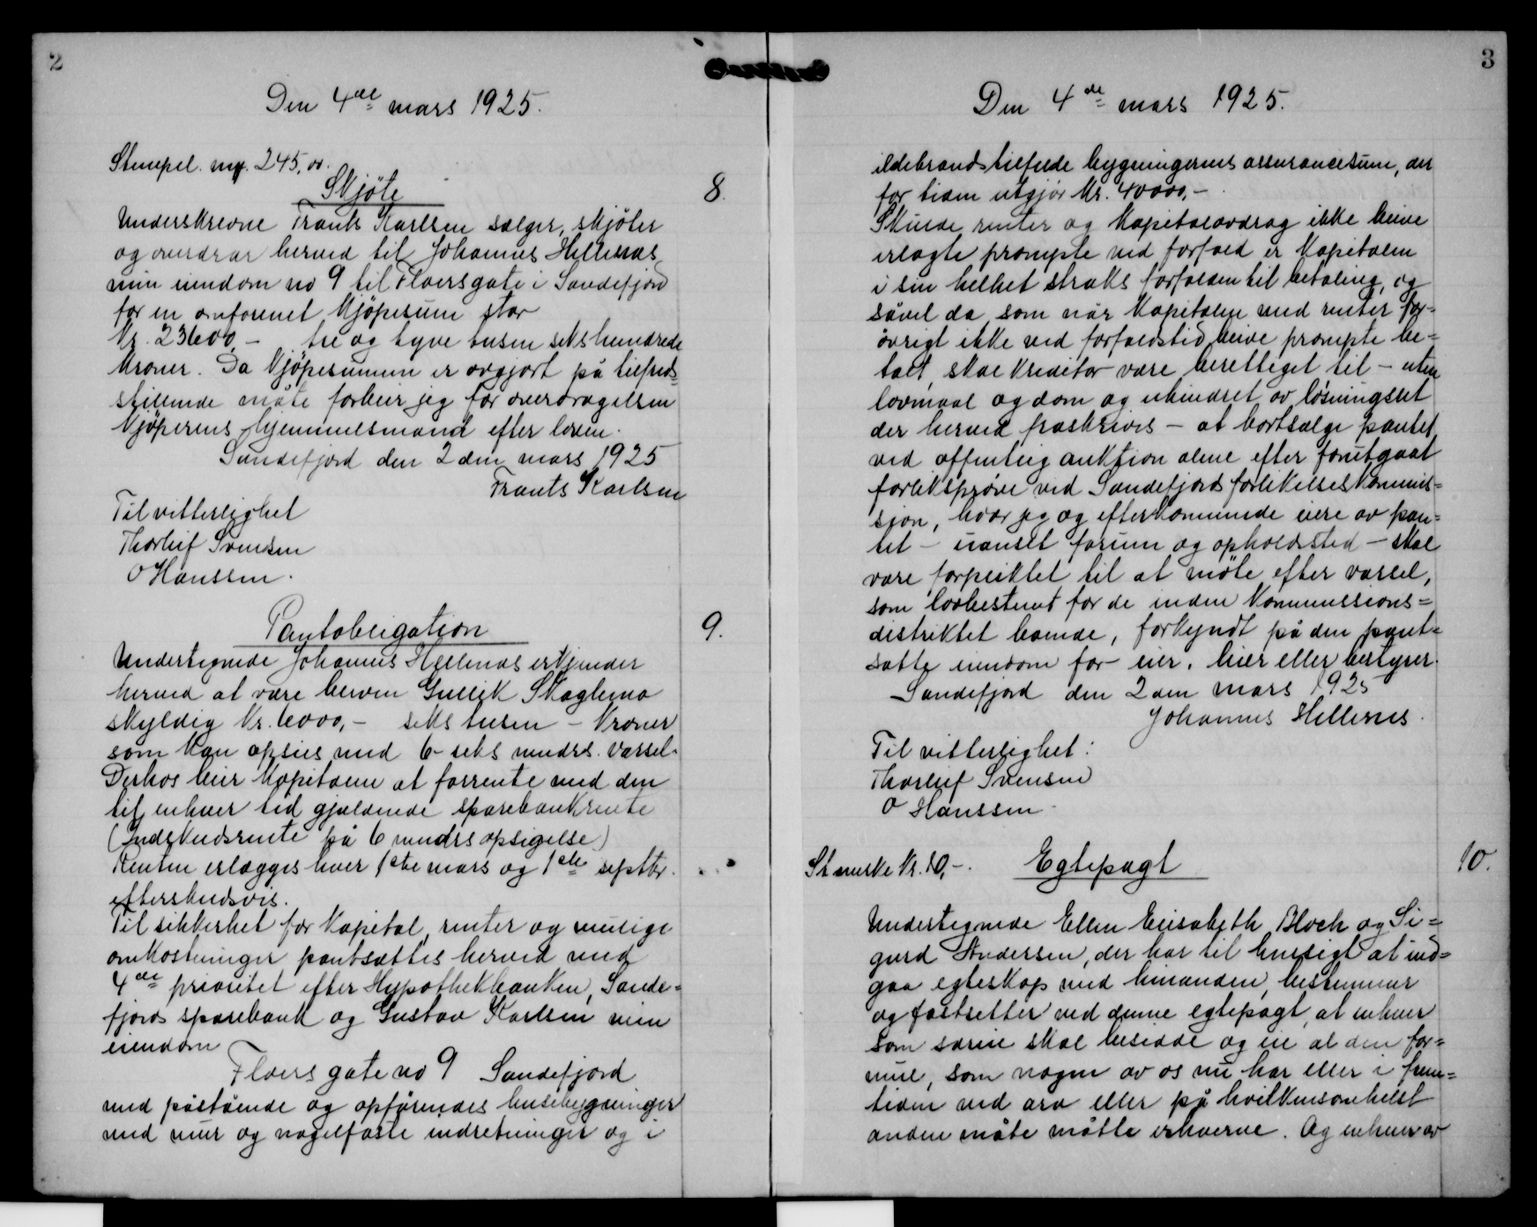 2
Den 4de mars 1925.
Stempel. mrk. 245,00.
Skjöte
8.
Underskrevne Frants Karlsen sælger, skjöter
og overdrar herved til Johannes Hellenæs
min eiendom no 9 til Floersgate i Sandefjord
for en omforenet kjöpesum stor
Kr. 23600,- tre og tyve tusen sekshundrede
kroner. Da kjöpesummen er avgjort på tilfreds-
stillende måte forblir jeg for overdragelsen
kjöperens hjemmelsmand efter loven.
Sandefjord den 2den mars 1925
Frants Karlsen
Til vitterlighet
Thorleif Svendsen
O Hanssen.
Pantobligation
9.
Undertegnede Johannes Hellenæs erkjender
herved at være bleven Gullik Skaglema
skyldig Kr. 6000,- seks tusen - kroner
som kan opsies med 6 - seks mndrs. varsel.
Derhos blir kapitalen at forrente med den
til enhver tid gjældende sparebankrente
(Indskudsrente på 6 mndrs opsigelse)
Renten erlægges hver 1ste mars og 1ste septbr.
efterskudsvis.
Til sikkerhet for kapital, renter og mulige
omkostninger pantsættes herved med
4de prioritet efter Hypothekbanken, Sande-
fjords sparebank og Gustav Karlsen min
eiendom
Floers gate no 9 Sandefjord
med påstående og opförendes husebygninger
med mur og nagelfaste indretninger og i
3
Den 4de mars 1925.
ildebrandstilfelde bygningernes assurancesum, der
for tiden utgjör Kr. 40000,-
Skulde renter og kapitalavdrag ikke blive
erlagte prompte ved forfald er kapitalen
i sin helhet straks forfalden til betaling, og
såvel da, som når kapitalen med renter for-
övrigt ikke ved forfaldstid blive prompte be-
talt, skal kreditor være berettiget til - uten
lovmaal og dom og uhindret av løsningsret
der herved fraskrives - at bortsælge pantet
ved offentlig auktion alene efter forutgaat
forliksprøve ved Sandefjords forlikelseskommis-
sjon, hvor jeg og efterkommende eiere av pan-
tet - uanset forum og opholdssted - skal
være forpliktet til at møte efter varsel,
som lovbestemt for de inden kommissions-
distriktet boende, forkyndt på den pant-
satte eiendom for eier, leier eller bestyrer.
Sandefjord den 2den mars 1925
Johannes Hellenes.
Til vitterlighet:
Thorleif Svensen
O Hanssen.
St merke Kr. 10,-. Egtepagt
10.
Undertegnede Ellen Elisabeth Bloch og Si-
gurd Andersen, der har til hensigt at ind-
gaa egteskap med hinanden, bestemmer
og fastsetter ved denne egtepagt, at enhver
som særeie skal besidde og eie al den for-
mue, som nogen av os nu har eller i frem-
tiden ved arv eller på hvilkensomhelst
anden måte måtte erhverve. Og enhver av